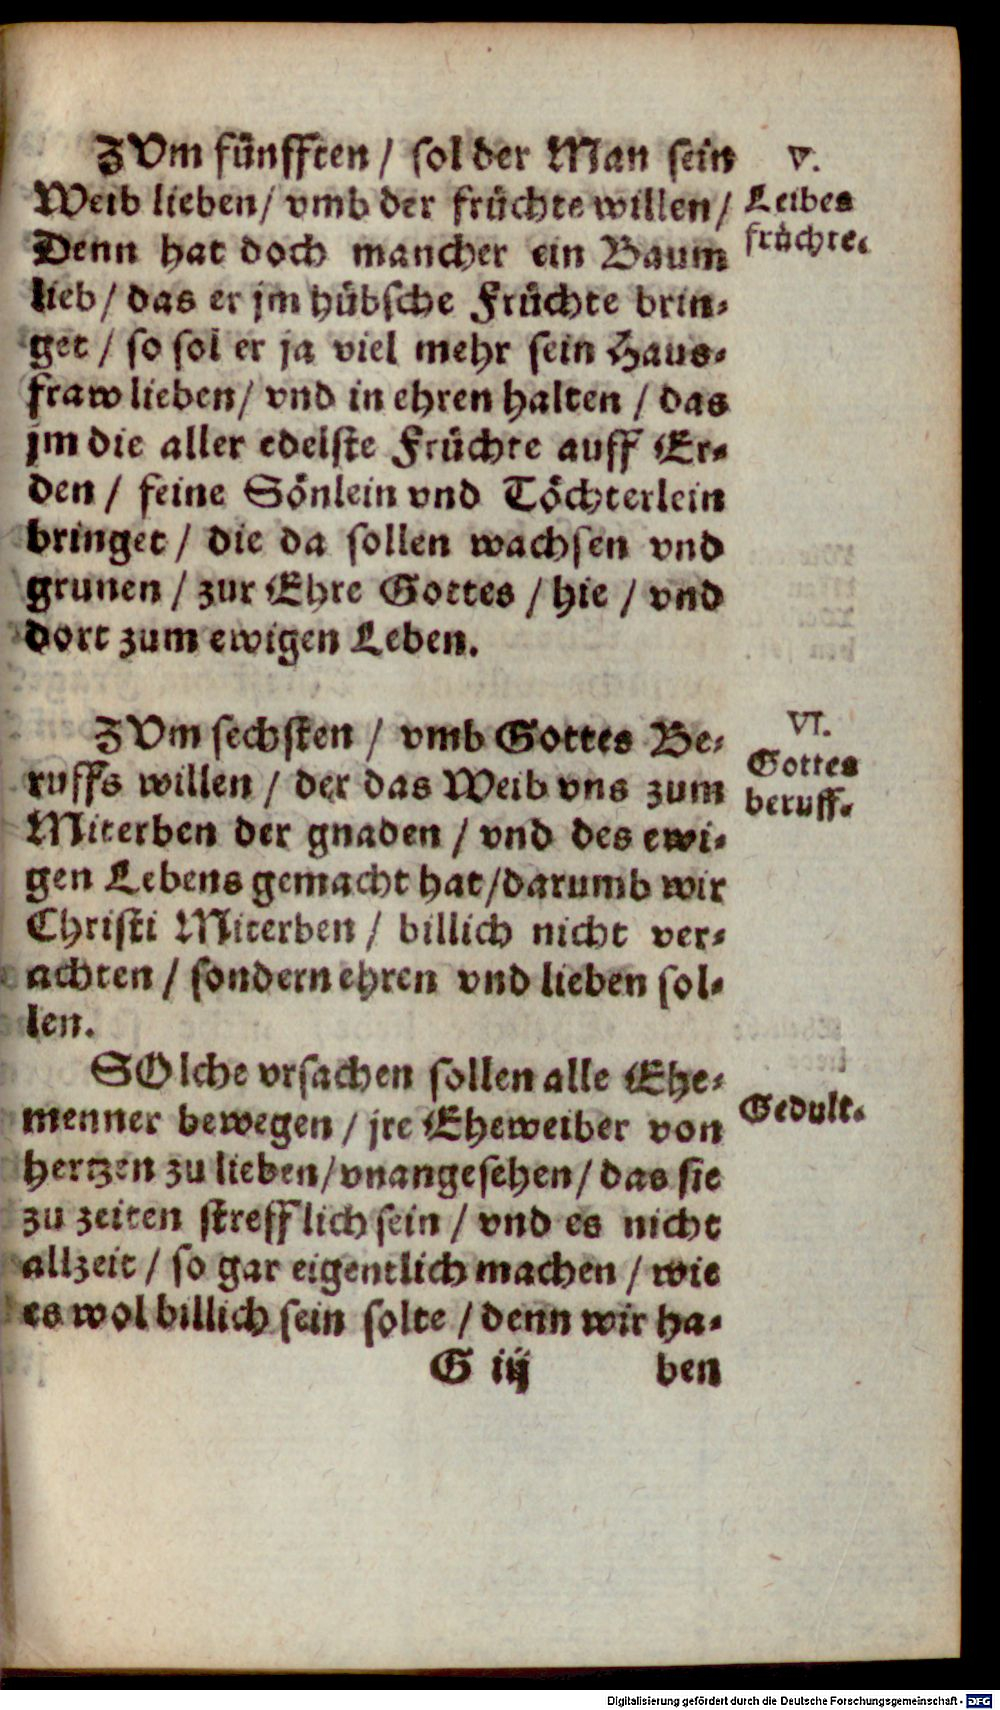 ZVm fünfften / sol der Man sein
Weib lieben / vmb der früchte willen /
Denn hat doch mancher ein Baum
lieb / das er jm hübsche Früchte brin-
get / so sol er ja viel mehr sein Haus-
fraw lieben / vnd in ehren halten / das
jm die aller edelste Früchte auff Er-
den / feine Sönlein vnd Töchterlein
bringet / die da sollen wachsen vnd
grunen / zur Ehre Gottes / hie / vnd
dort zum ewigen Leben.
V.
Leibes
früchte.
ZVm sechsten / vmb Gottes Be-
ruffs willen / der das Weib vns zum
Miterben der gnaden / vnd des ewi-
gen Lebens gemacht hat / darumb wir
Christi Miterben / billich nicht ver-
achten / sondern ehren vnd lieben sol-
len.
VI.
Gottes
beruff.
SOlche vrsachen sollen alle Ehe-
menner bewegen / jre Eheweiber von
hertzen zu lieben / vnangesehen / das sie
zu zeiten strefflich sein / vnd es nicht
allzeit / so gar eigentlich machen / wie
es wol billich sein solte / denn wir ha-
Gedult.
G iij ben
Digitalisierung gefördert durch die Deutsche Forschungsgemeinschaft - DFG